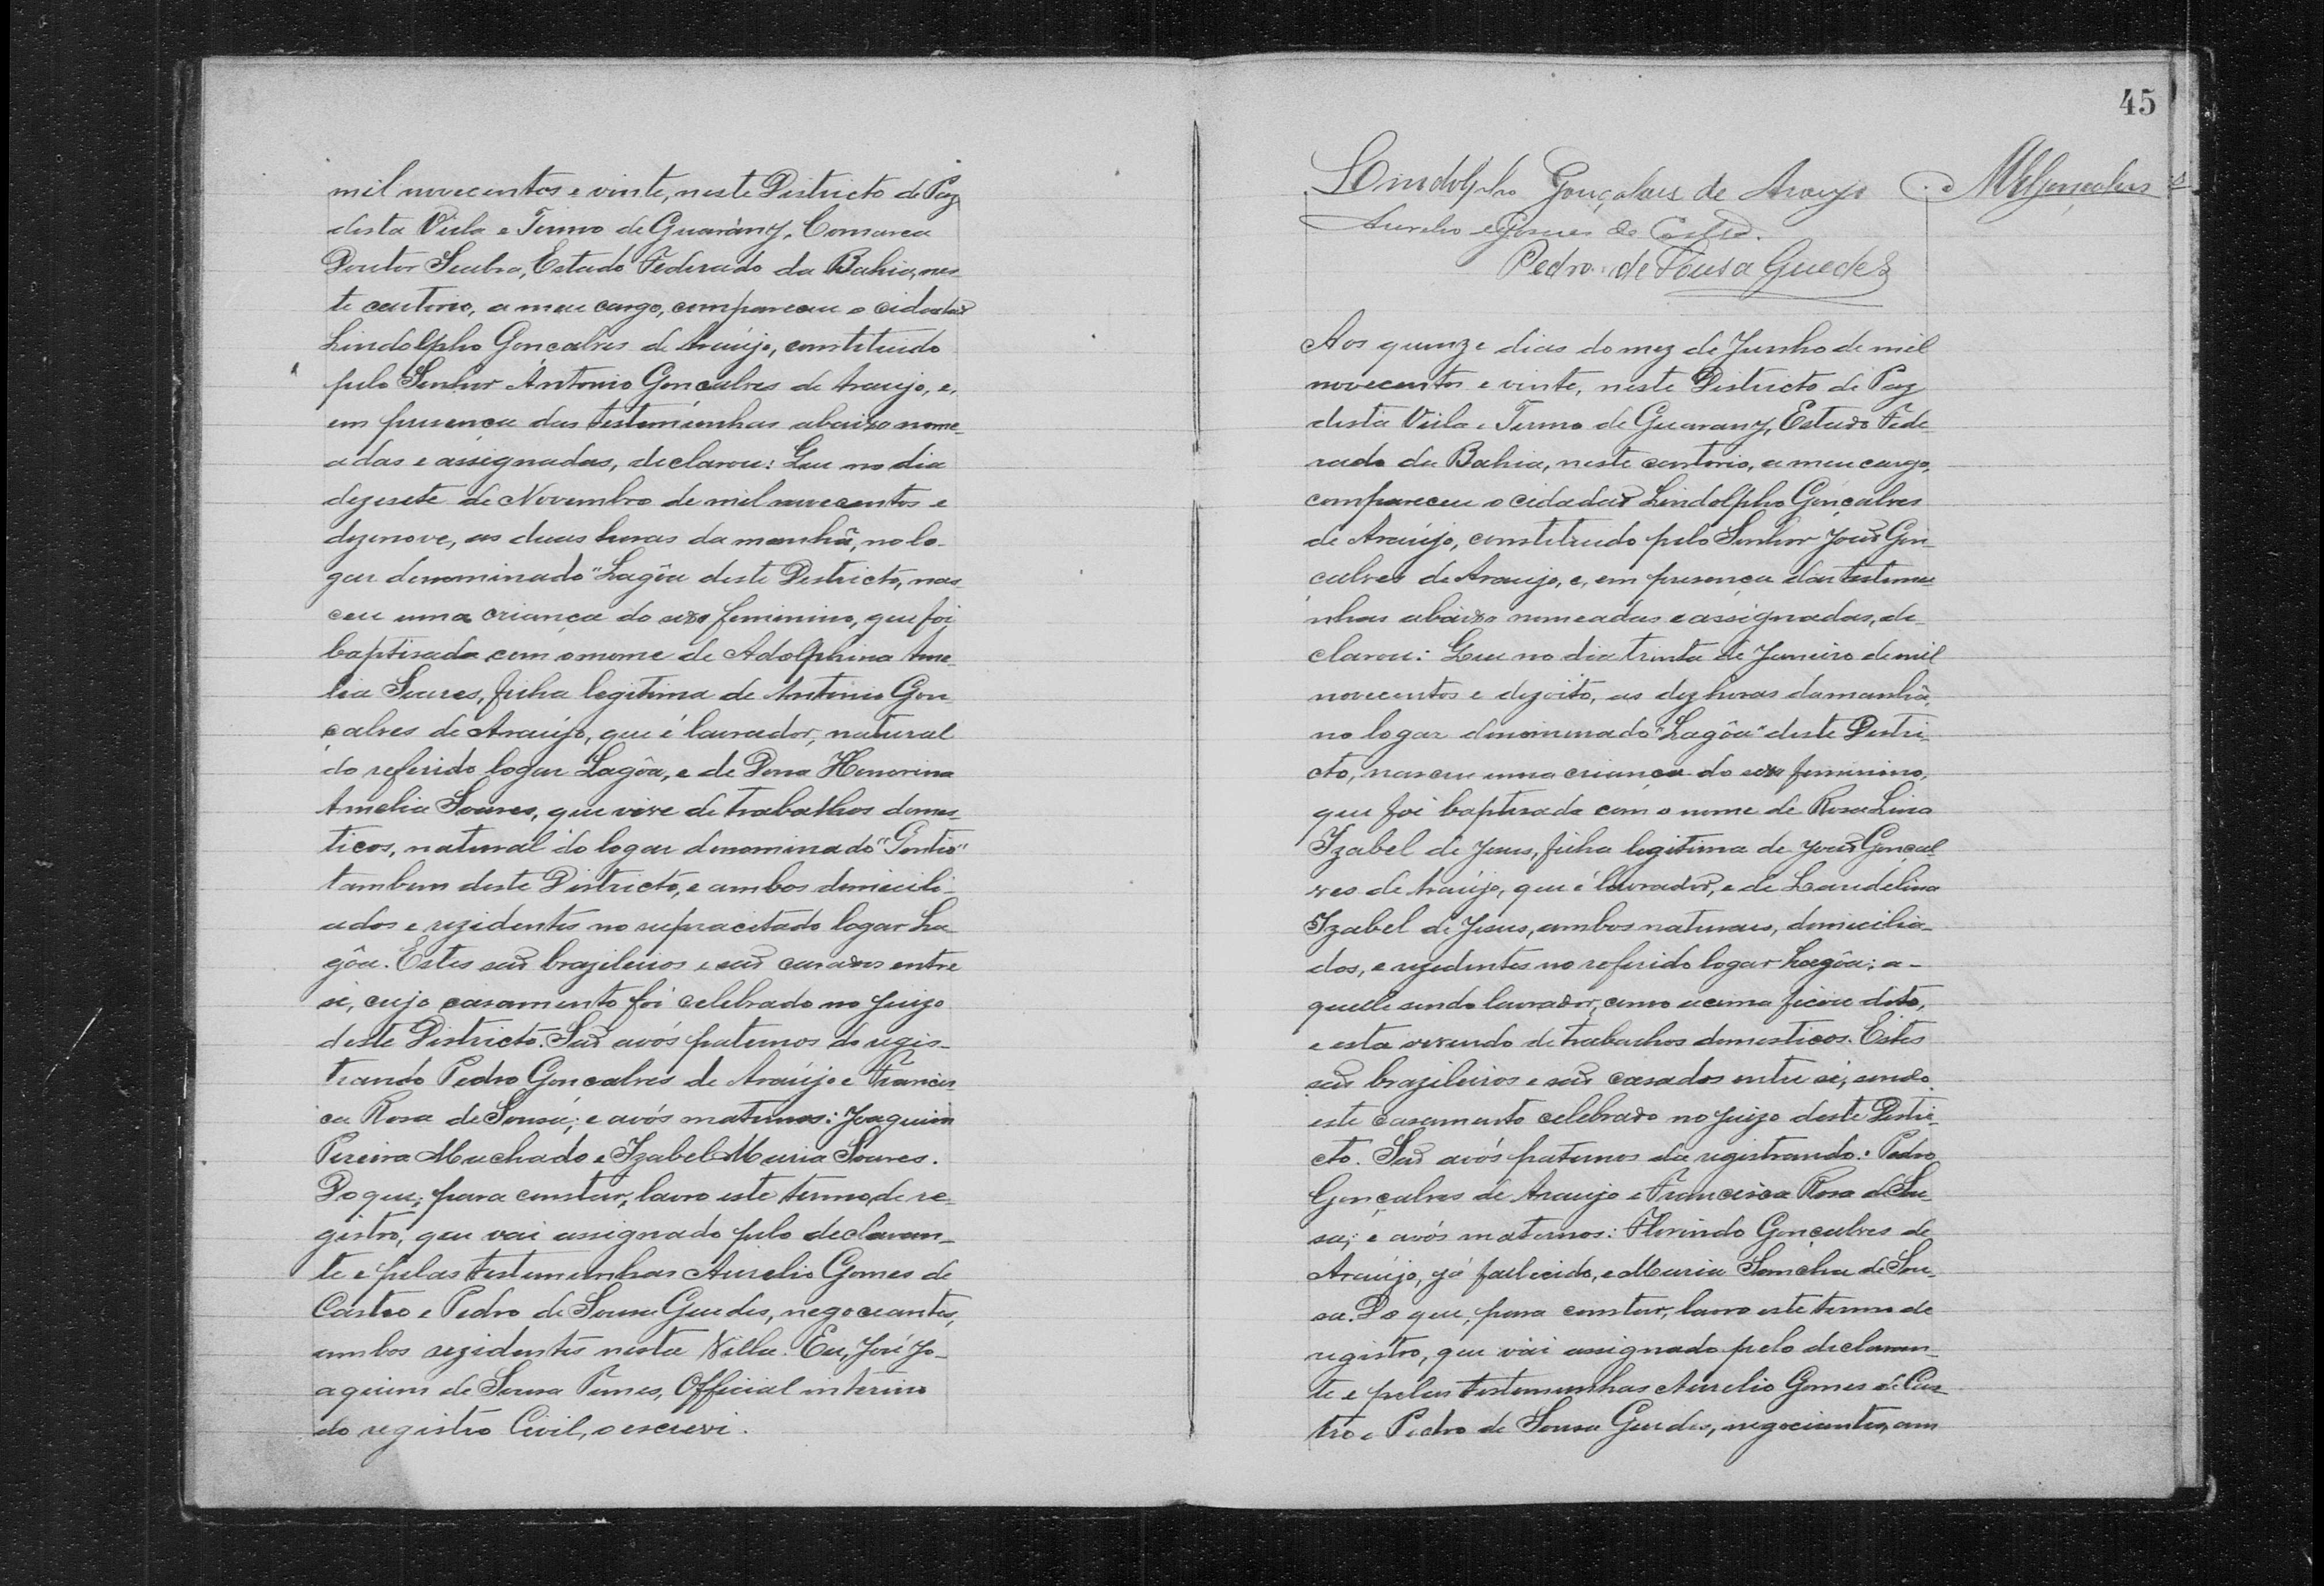 mil novecentos e vinte, neste Districto de Paz
desta Villa e Termo de Guarány, Comarca
Doutor Seabra, Estado Federado da Bahia, nes-
te cartorio, a meu cargo, compareceu o cidadão
Lindolpho Gonçalves de Araújo, constituido
pelo Senhor Antonio Gonçalves de Araujo, e,
em presença das testemunhas abaixo nome-
adas e assignadas, declarou: Que no dia
dezesete de Novembro de mil novecentos e
dezenove, as duas horas da manhã, no lo-
gar denominado "Lagôa deste Districto, nas-
ceu uma criança do sexo feminino, que foi
baptisada com o nome de Adolphina Ame-
lia Soares, filha legitima de Antonio Gon-
çalves de Araújo, que é lavrador, natural
do referido logar Lagôa, e de Dona Honorina
Amelia Soares, que vive de trabalhos domes-
ticos, natural do logar denominado "Gentio"
tambem deste Districto, e ambos domicili-
ados e rezidentes no supracitado logar La-
gôa. Estes são brazileiros e são casados entre
si, cujo casamento foi celebrado no Juizo
deste Districto. São avós paternos do regis-
trando Pedro Gonçalves de Araújo e Francis-
ca Rosa de Sousa; e avós maternos: Joaquim
Pereira Machado e Izabel Maria Soares.
Do que, para constar, lavro este termo de re-
gistro, que vai assignado pelo declaran-
te e pelas testemunhas Aurelio Gomes de
Castro e Pedro de Sousa Guedes, negociantes,
ambos rezidentes nesta Villa. Eu, José Jo-
aquim de Sousa Nunes, Official interino
do registro Civil, o escrevi.
45
Lindolpho Gonçalves de Araujo
MGonçalves
Aurelio Gomes de Castro.
Pedro de Sousa Guedes
Aos quinze dias do mez de Junho de mil
novecentos e vinte, neste Districto de Paz
desta Villa e Termo de Guarany, Estado Fede-
rado da Bahia, neste cartorio, a meu cargo,
compareceu o cidadão Lindolpho Gonçalves
de Araújo, constituido pelo Senhor João Gon-
çalves de Araujo, e, em presença das testemu-
nhas abaixo nomeadas e assignadas, de-
clarou: Que no dia trinta de Janeiro de mil
novecentos e dezoito, as dez horas da manhã,
no logar denominado "Lagôa" deste Distri-
cto, nasceu uma criança do sexo feminino,
que foi baptisada com o nome de Rosa Lina
Izabel de Jesus, filha legitima de João Gonçal-
ves de Araújo, que é lavrador, e de Laudelina
Izabel de Jesus, ambos naturaes, domicilia-
dos, e rezidentes no referido logar Lagôa; a-
quelle sendo lavrador, como acima ficou dito,
e esta vivendo de trabalhos domesticos. Estes
são brazileiros e são casados entre si, sendo
este casamento celebrado no Juizo deste Distri-
cto. São avós paternos da registrando: Pedro
Gonçalves de Araujo e Francisca Rosa de Sou-
sa; e avós maternos: Florindo Gonçalves de
Araújo, já fallecido, e Maria Sancha de Sou-
sa. Do que, para constar, lavro este termo de
registro, que vai assignado pelo declaran-
te e pelas testemunhas Aurelio Gomes de Cas-
tro e Pedro de Sousa Guedes, negociantes, am